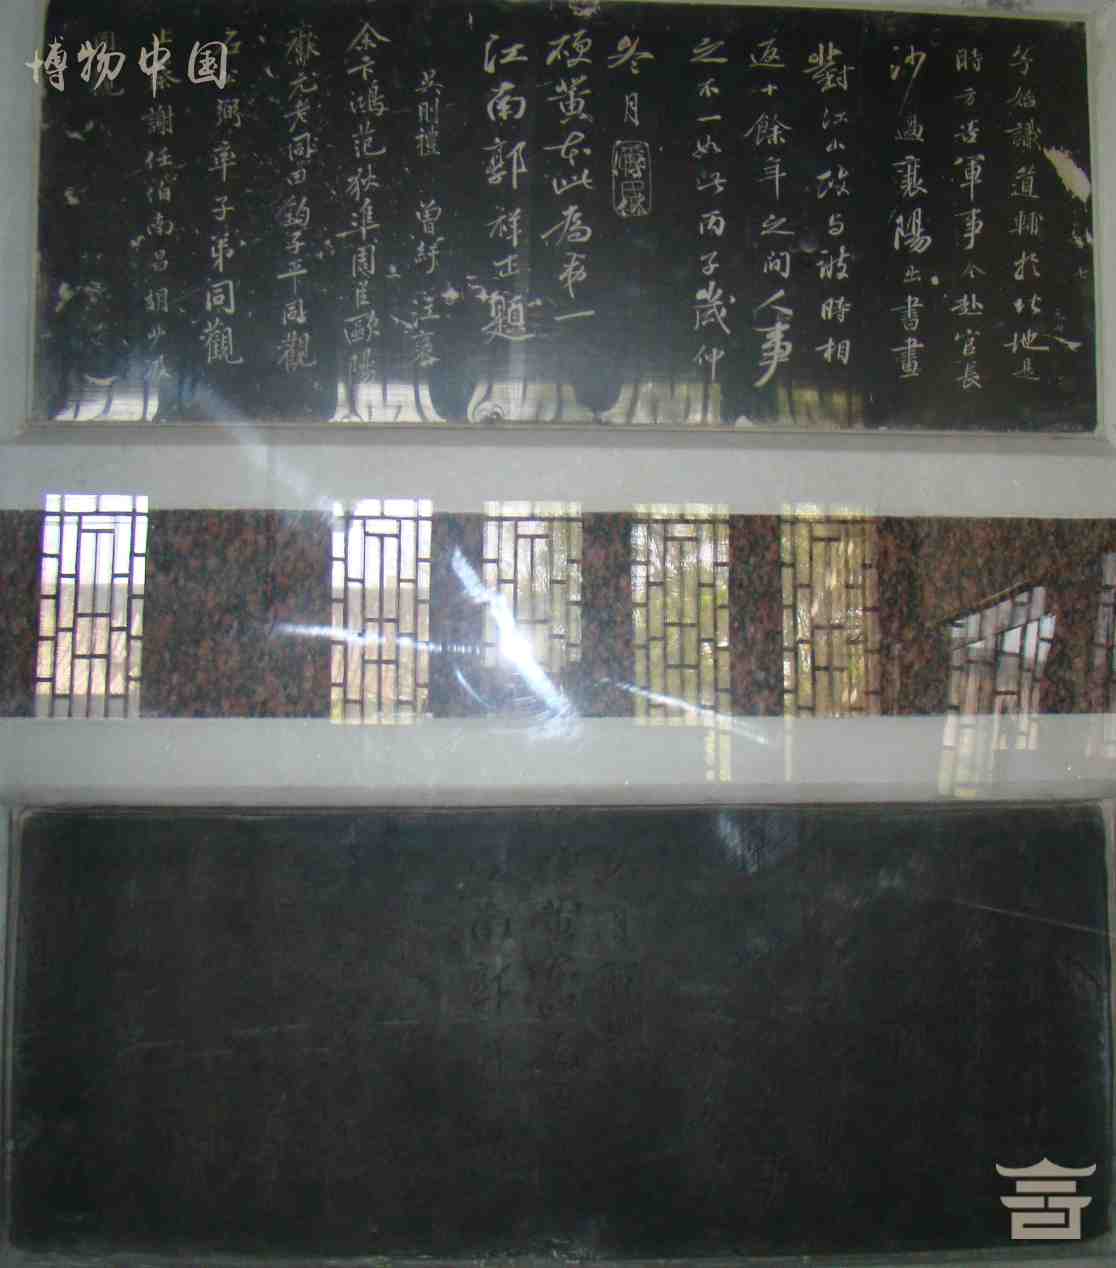 博物中国
予始識道輔於北地是
時方談軍事今赴官長
沙過襄陽出書畫
對江山改与彼時相
返十餘年之间人事
之不一如此丙子歲仲
冬月
硬黄本此為弟一
江南郭祥正題
吳則禮 曾紆
余卞鴻范狄準周 歐陽
獻元老同田鈞子平同觀
弼率子弟同觀
謝任伯南昌胡少汲